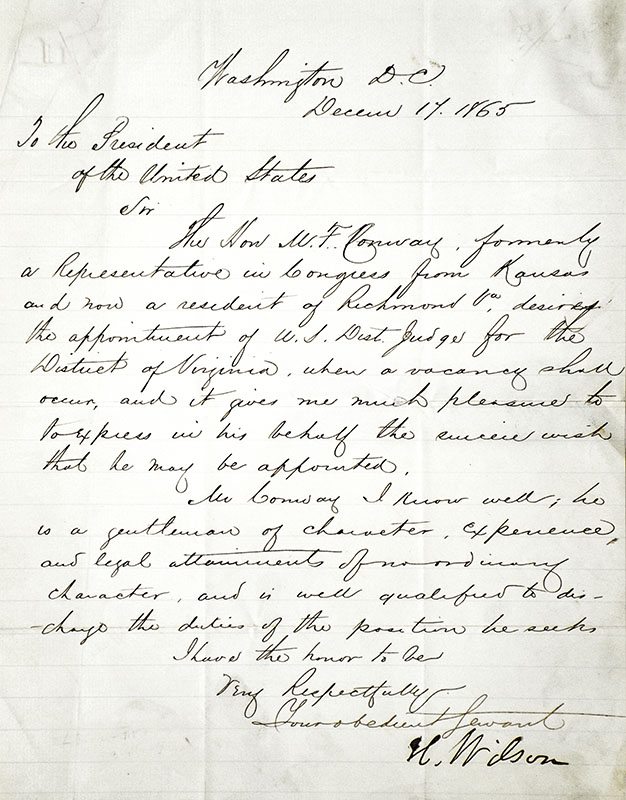 Washington D.C.
Decem 17. 1865
To the President
of the United States
Sir
The Hon M. F. Conway, formerly
a Representative in Congress from Kansas
and now a resident of Richmond Va, desires
the appointment of U. S. Dist. Judge for the
District of Virginia, when a vacancy shall
occur, and it gives me much pleasure to
to express in his behalf the sincere wish
that he may be appointed.
Mr Conway I know well; he
is a gentleman of character, experience,
and legal attainments of no ordinary
character, and is well qualified to dis-
-charge the duties of the position he seeks
I have the honor to be
Very Respectfully
Your obedient Servant
H. Wilson